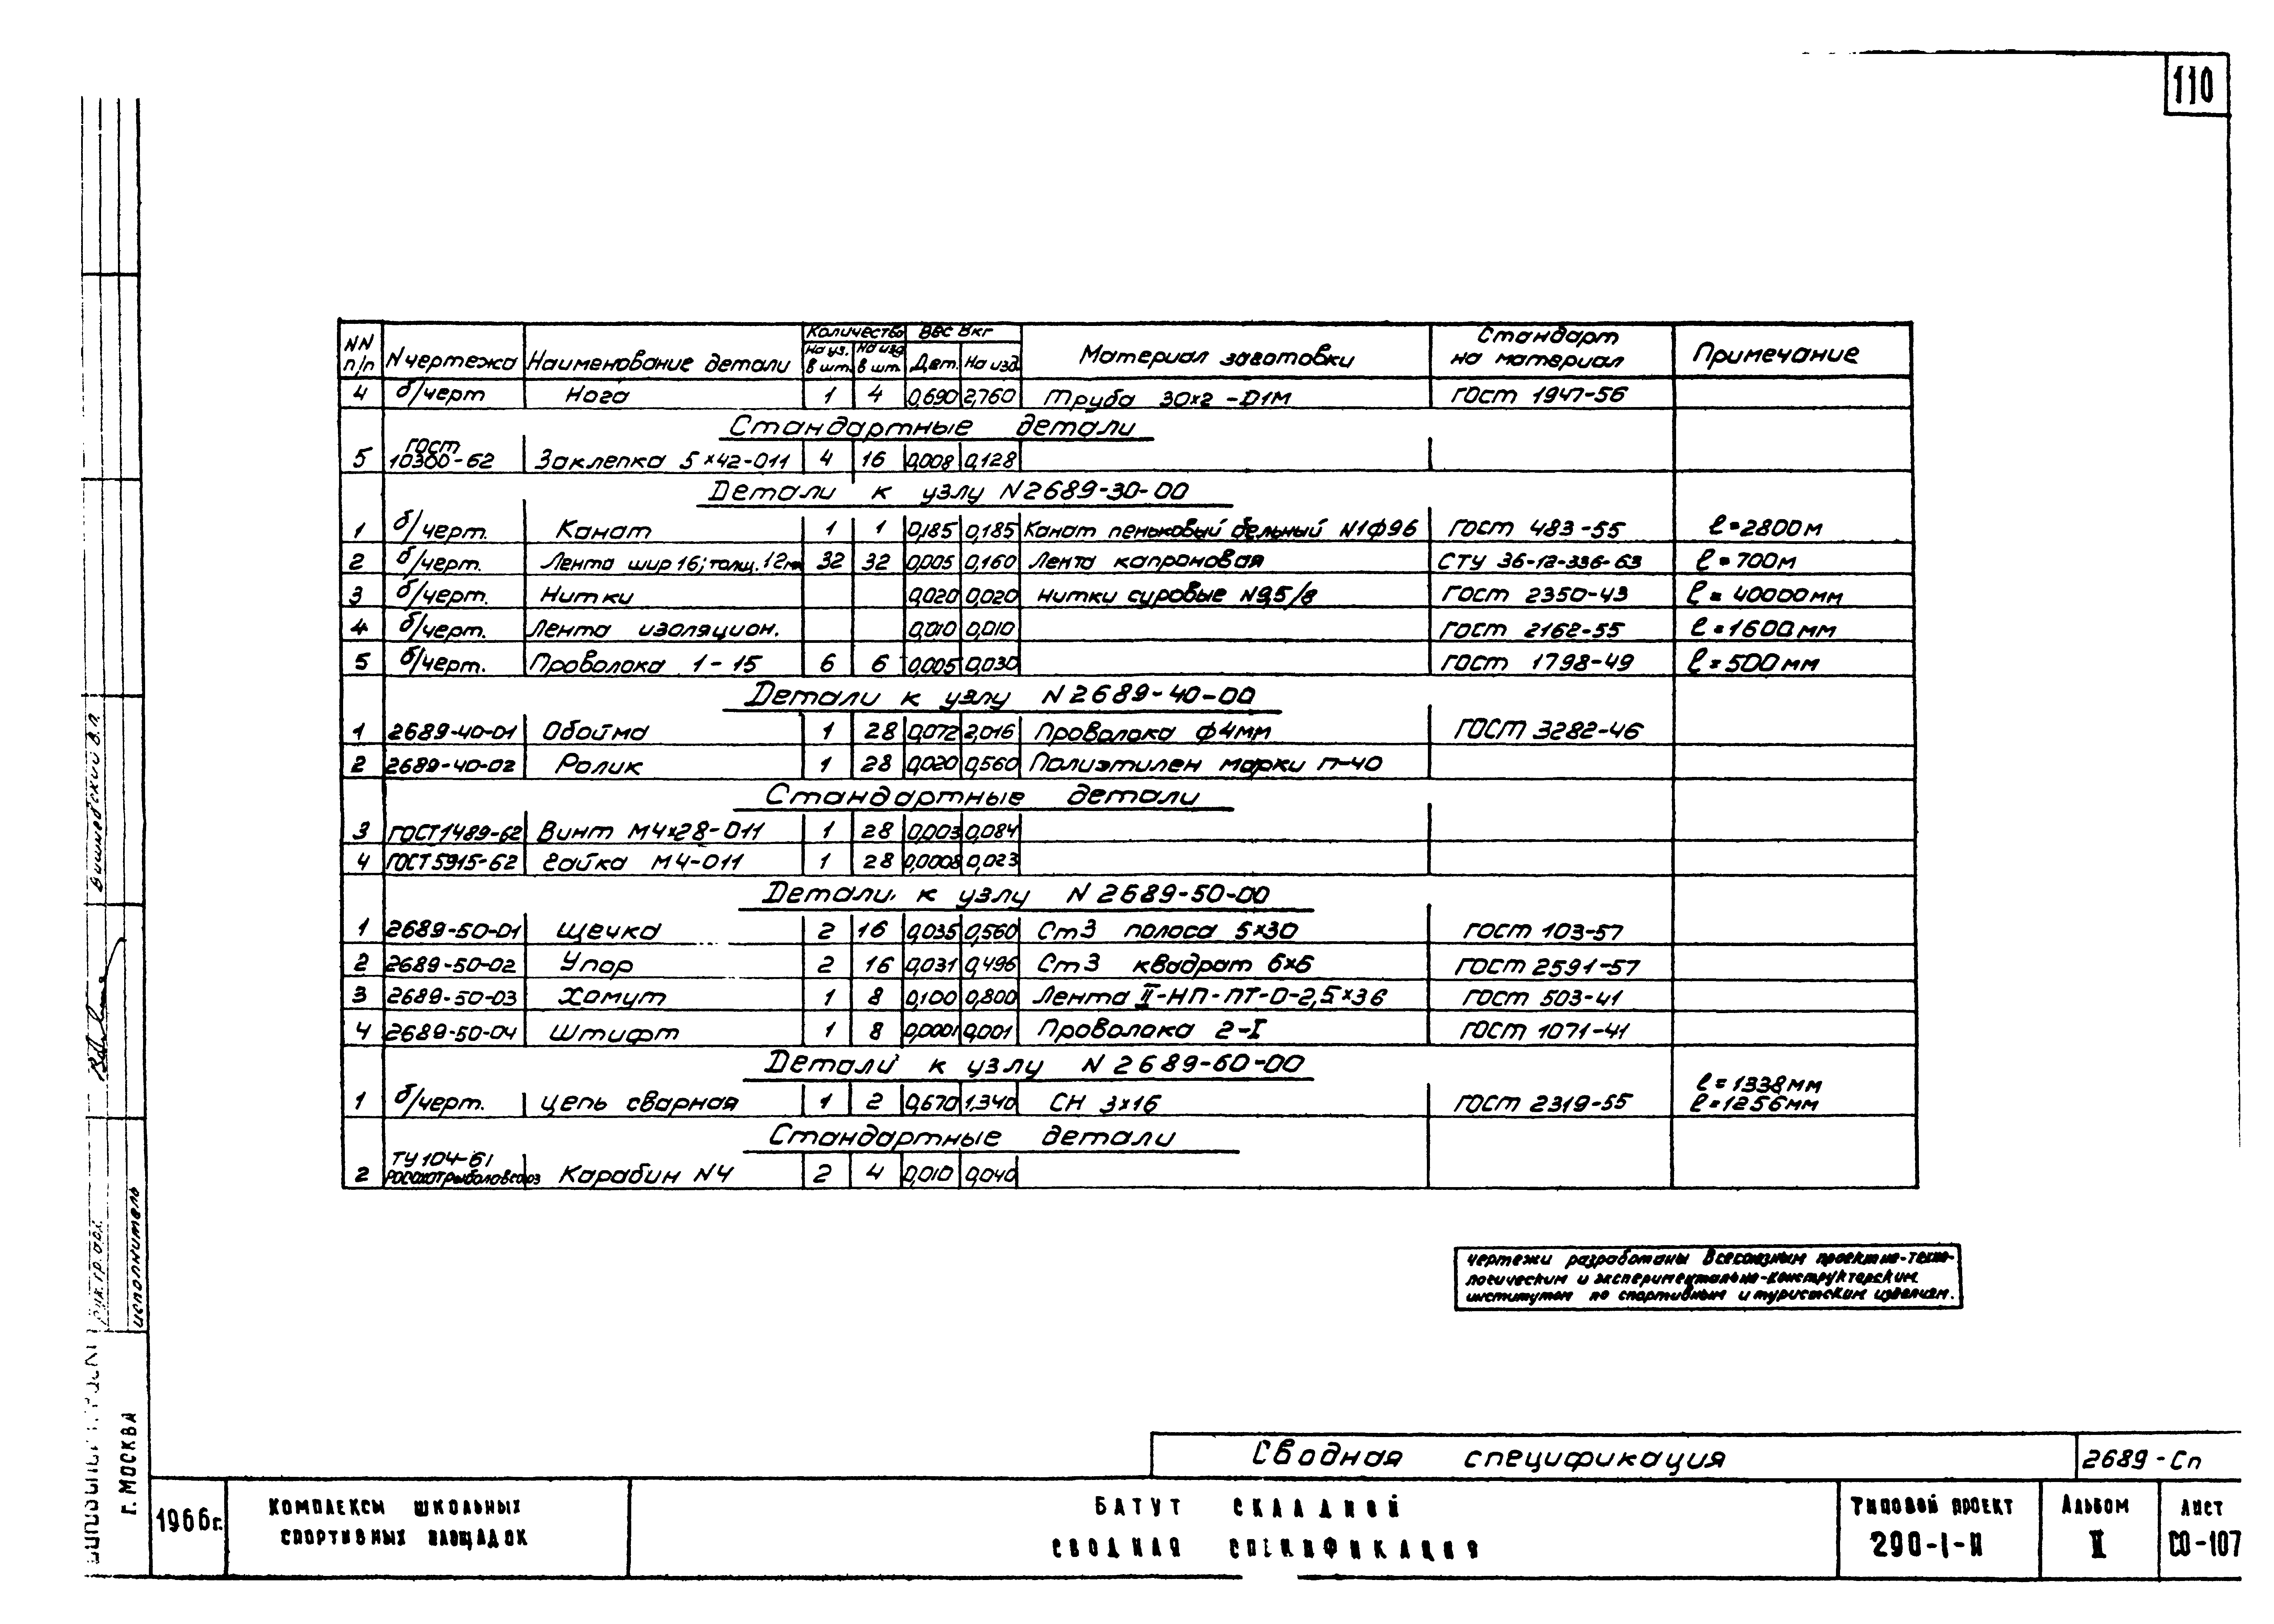 110
NN п/п N чертежа Наименование детали Количество На уз. в шт. На изд в шт. Вес в кг Дет. На изд Материал заготовки Стандарт на материал Примечание
4 б/черт Нога 1 4 0,690 2,760 Труба 30×2 -D1М ГОСТ 1947-56
Стандартные детали
5 ГОСТ 10300-62 Заклепка 5×42-011 4 16 0,008 0,128
Детали к узлу N2689-30-00
1 б/черт. Канат 1 1 0,185 0,185 Канат пеньковый бельный N1ф96 ГОСТ 483-55 ℓ=2800м
2 б/черт. Лента шир 16; толщ. 12мм 32 32 0,005 0,160 Лента капроновая СТУ 36-12-336-63 ℓ=700м
3 б/черт. Нитки 0,020 0,020 нитки суровые N9,5/8 ГОСТ 2350-43 ℓ=40000мм
4 б/черт. Лента изоляцион. 0,010 0,010 ГОСТ 2162-55 ℓ=1600мм
5 б/черт. Проволока 1-15 6 6 0,005 0,030 ГОСТ 1798-49 ℓ=500мм
Детали к узлу N2689-40-00
1 2689-40-01 Обойма 1 28 0,072 2,016 Проволока ф4мм ГОСТ 3282-46
2 2689-40-02 Ролик 1 28 0,020 0,560 Полиэтилен марки П-40
Стандартные детали
3 ГОСТ1489-62 Винт М4×28-011 1 28 0,003 0,084
4 ГОСТ5915-62 Гайка М4-011 1 28 0,0008 0,023
Детали к узлу N2689-50-00
1 2689-50-01 Щечка 2 16 0,035 0,560 Ст3 полоса 5×30 ГОСТ 103-57
2 2689-50-02 Упор 2 16 0,031 0,496 Ст3 квадрат 6×6 ГОСТ 2591-57
3 2689-50-03 Хомут 1 8 0,100 0,800 Лента II-НП-ПТ-О-2,5×36 ГОСТ 503-41
4 2689-50-04 Штифт 1 8 0,0001 0,001 Проволока 2-I ГОСТ 1071-41
Детали к узлу N2689-60-00
1 б/черт. Цепь сварная 1 2 0,670 1,340 СН 3×16 ГОСТ 2319-55 ℓ=1338мм ℓ=1256мм
Стандартные детали
2 ТУ104-61 Росохотрыболовсоюз Карабин N4 2 4 0,010 0,040
Чертежи разработаны Всесоюзным проектно-техно-
логическим и экспериментально-конструкторским
институтом по спортивным и туристским изделиям.
Вишневский В.П.
Рук. гр. арх.
исполнитель
г. МОСКВА
Сводная спецификация 2689-Сп
1966г.
КОМПЛЕКСЫ ШКОЛЬНЫХ
СПОРТИВНЫХ ПЛОЩАДОК
БАТУТ СКЛАДНОЙ
СВОДНАЯ СПЕЦИФИКАЦИЯ
ТИПОВОЙ ПРОЕКТ
290-1-II
АЛЬБОМ
II
ЛИСТ
СО-107